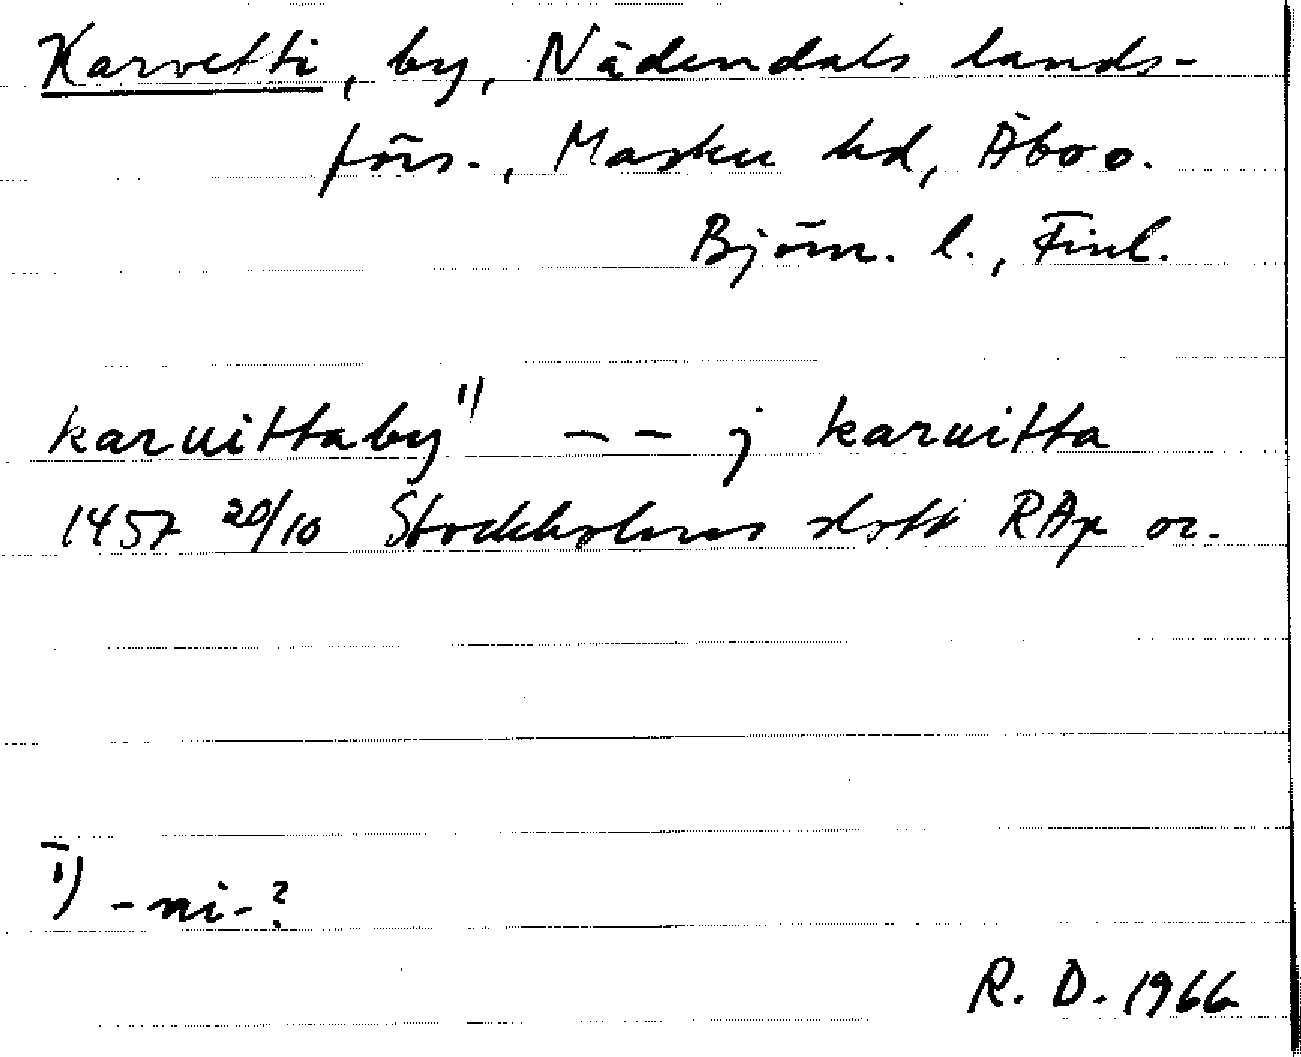 Karvetti, by, Nådendals lands-
förs., Masku hd, Åbo o.
Björn. l., Finl.
karuittaby 1) - - j karuitta
1457 20/10 Stockholms slott RAp or.
1) -ni-?
R. D. 1966